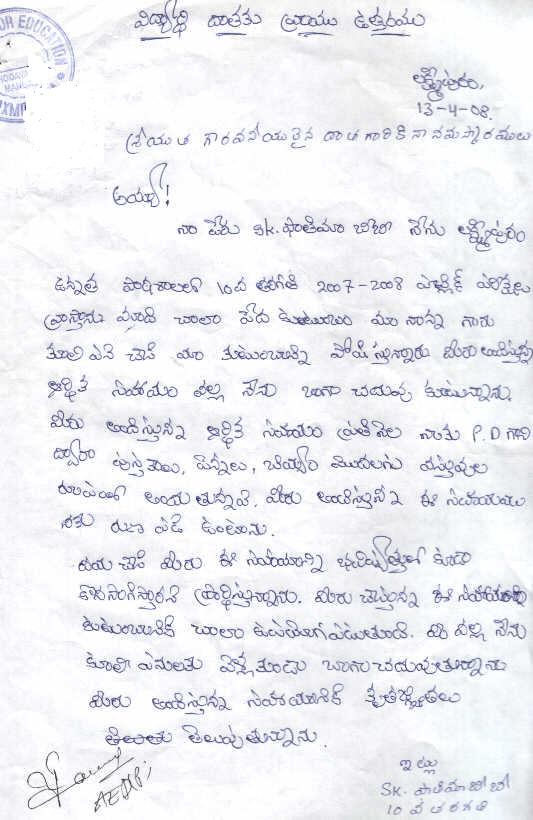 విద్యార్థి దాతకు వ్రాయు ఉత్తరము
OR EDUCATION
లక్ష్మీపురం,
13-4-08.
శ్రీయుత గౌరవనీయులైన దాత గారికి నా నమస్కారములు
అయ్యా!
నా పేరు SK. ఫాతిమా బీబి నేను లక్ష్మీపురం
ఉన్నత పాఠశాలలో 10వ తరగతి 2007-2008 పబ్లిక్ పరీక్షలు
వ్రాస్తాను మాది చాలా పేద కుటుంబం మా నాన్న గారు
కూలి పని చేసి మా కుటుంబాన్ని పోషిస్తున్నారు మీరు అందిస్తున్న
ఆర్థిక సహాయం వల్ల నేను బాగా చదువు కుంటున్నాను.
మీరు అందిస్తున్న ఆర్థిక సహాయం ప్రతినెల నాకు P.D గారి
ద్వారా పుస్తకాలు, పెన్నులు, బియ్యం మొదలగు వస్తువుల
రూపంలో అందుతున్నవి. మీరు అందిస్తున్న ఈ సహాయమునకు
రుణ పడి ఉంటాను.
దయ చేసి మీరు ఈ సహాయాన్ని భవిష్యత్తులో కూడా
కొనసాగిస్తారని ప్రార్థిస్తున్నాను. మీరు చేస్తున్న ఈ సహాయం
కుటుంబానికి చాలా ఉపయోగపడుతుంది. మీ వల్ల నేను
కూలీ పనులకు వెళ్ళకుండా బాగా చదువుతున్నాను
మీరు అందిస్తున్న సహాయానికి కృతజ్ఞతలు
తెలుపుతున్నాను.
ఇట్లు
SK. ఫాతిమా బీబీ
10 వ తరగతి